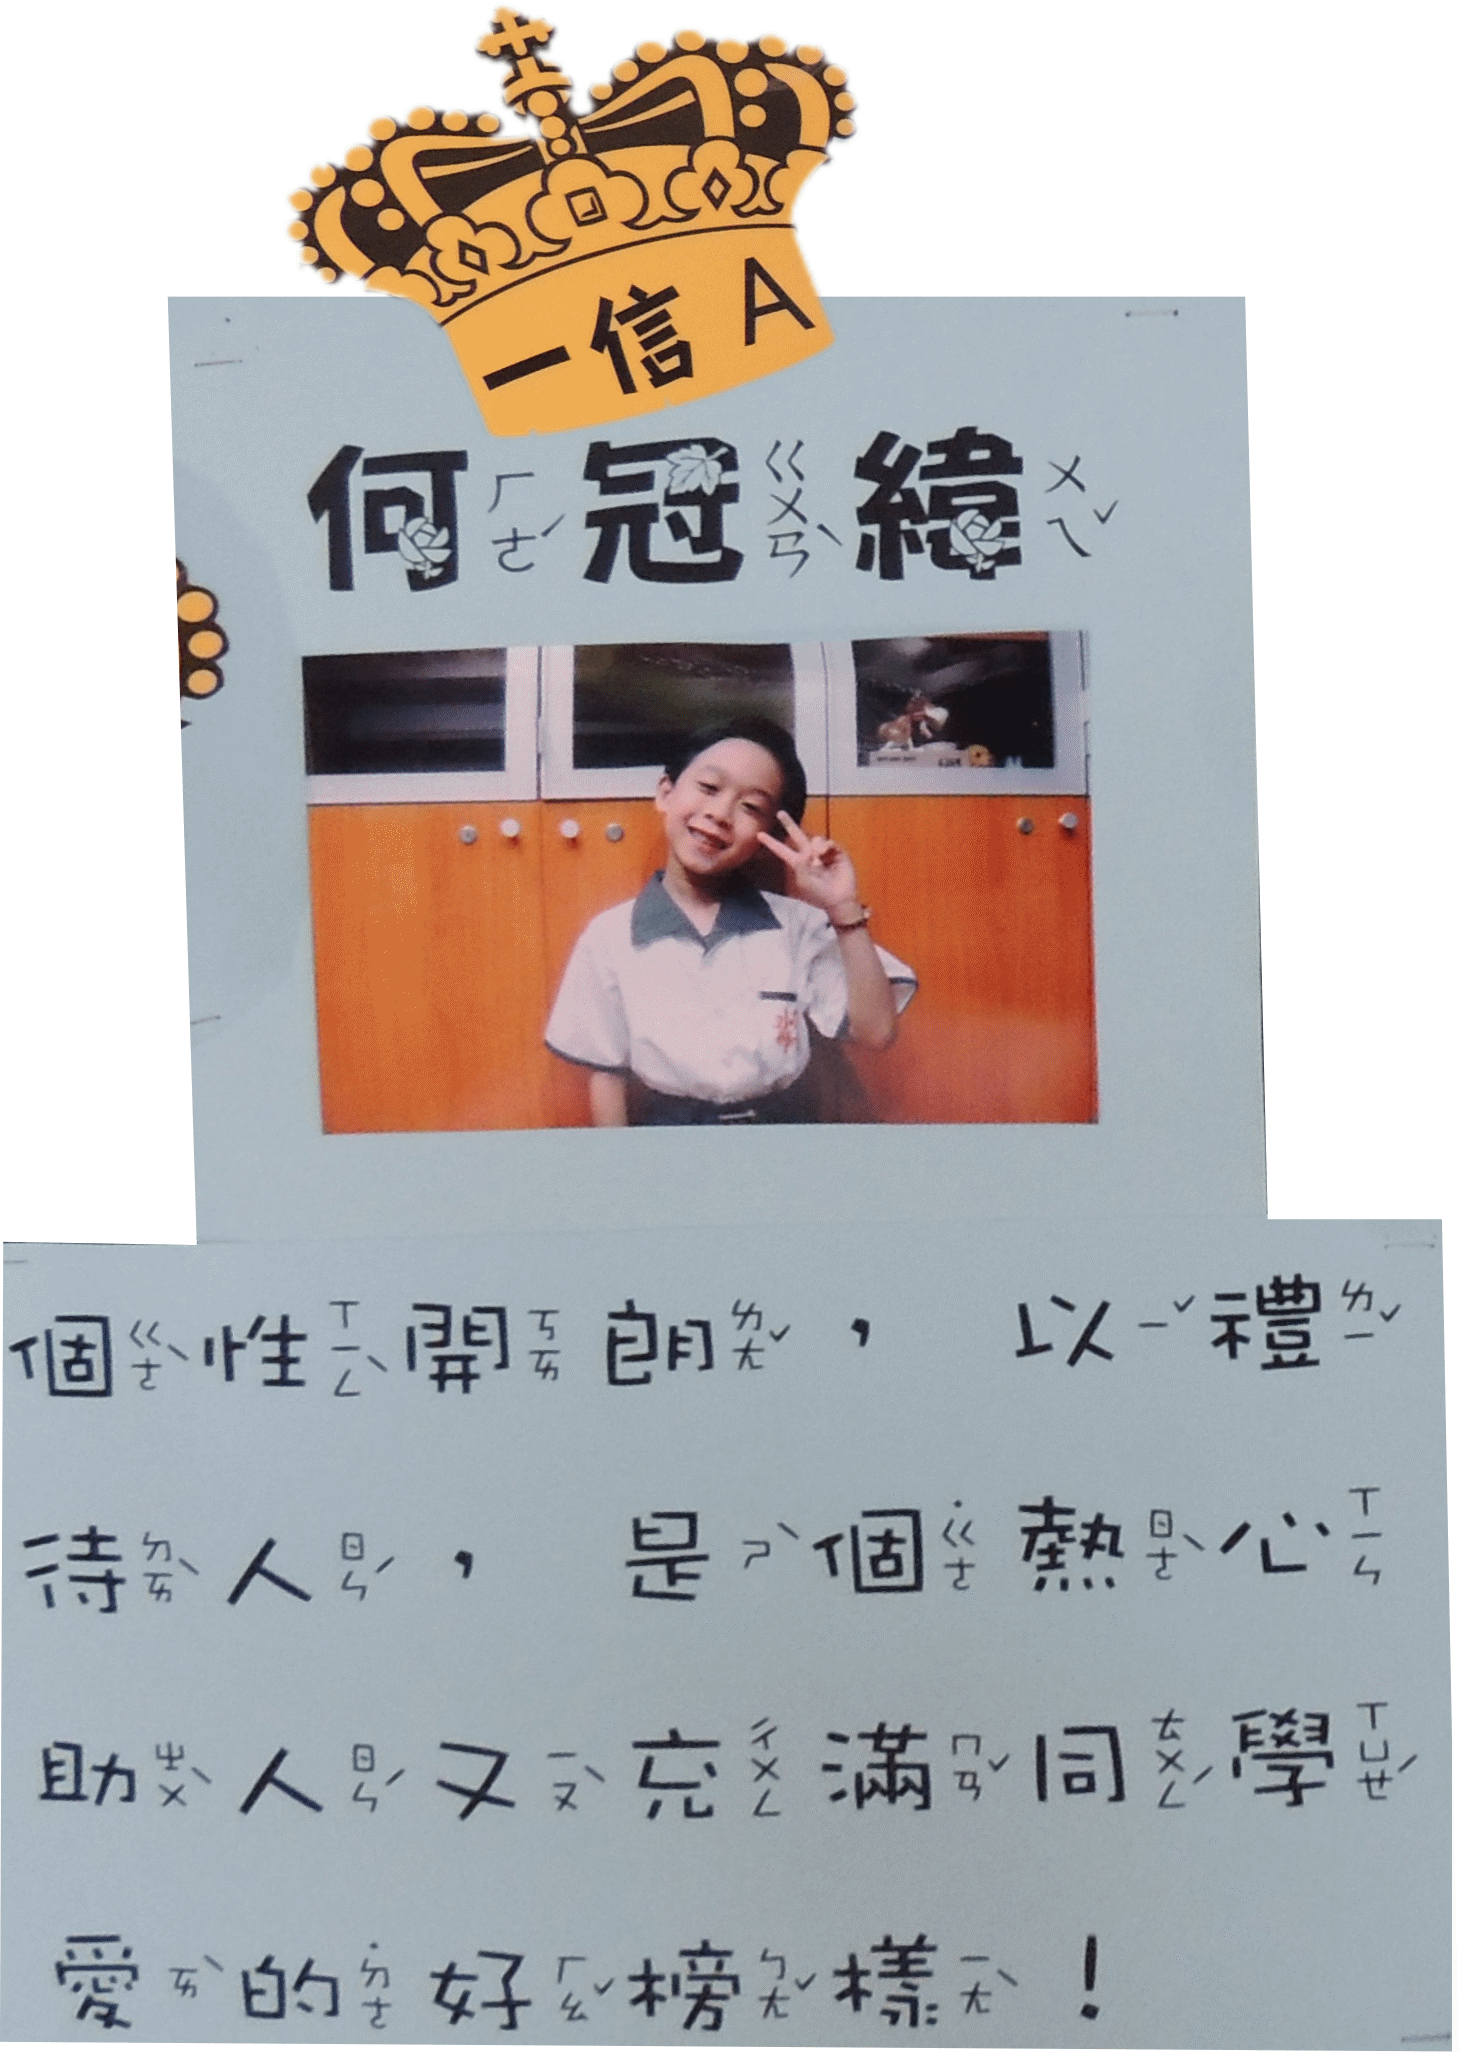 一信 A
何ㄏㄜˊ冠ㄍㄨㄢˋ緯ㄨㄟˇ
個ㄍㄜˋ性ㄒㄧㄥˋ開ㄎㄞ朗ㄌㄤˇ，以ㄧˇ禮ㄌㄧˇ
待ㄉㄞˋ人ㄖㄣˊ，是ㄕˋ個˙ㄍㄜ熱ㄖㄜˋ心ㄒㄧㄣ
助ㄓㄨˋ人ㄖㄣˊ又ㄧㄡˋ充ㄔㄨㄥ滿ㄇㄢˇ同ㄊㄨㄥˊ學ㄒㄩㄝˊ
愛ㄞˋ的˙ㄉㄜ好ㄏㄠˇ榜ㄅㄤˇ樣ㄧㄤˋ！